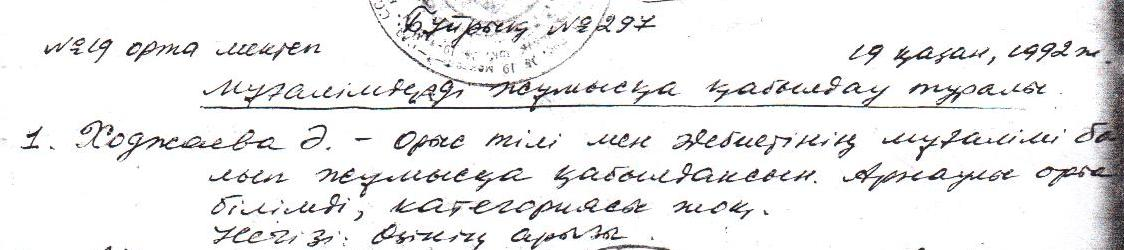 Бұйрық №297
№19 орта мектеп 19 қазан, 1992 ж.
Мұғалімдерді жұмысқа қабылдау туралы
1. Ходжаева Ә. – орыс тілі мен әдебиетінің мұғалімі бо
лып жұмысқа қабылдансын. Арнаулы орта
білімді, категориясы жоқ.
Негізі: Өзінің арызы.